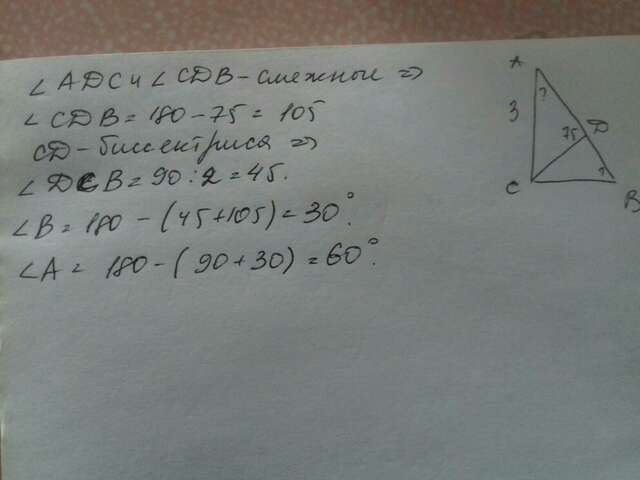 ∠ADC и ∠CDB - смежные ⇒
∠CDB = 180 - 75 = 105
CD - биссектриса ⇒
∠DCB = 90 : 2 = 45.
∠B = 180 - (45+105) = 30°.
∠A = 180 - (90+30) = 60°.
A
?
3
75
D
C
?
B